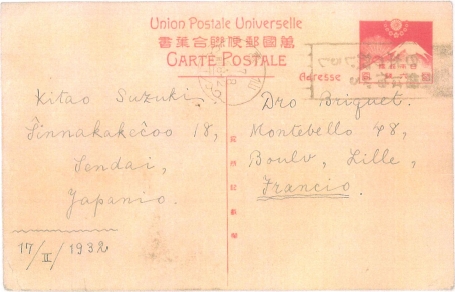 Union Postale Universelle
書葉合聯便郵國萬
CARTE POSTALE
Adresse
Kitao Suzuki,
Ŝinnakakĉoo 18,
Sendai,
Japanio.
17/II/1932
Dro Briquet.
Montebello 48,
Boulv, Lille,
Francio.